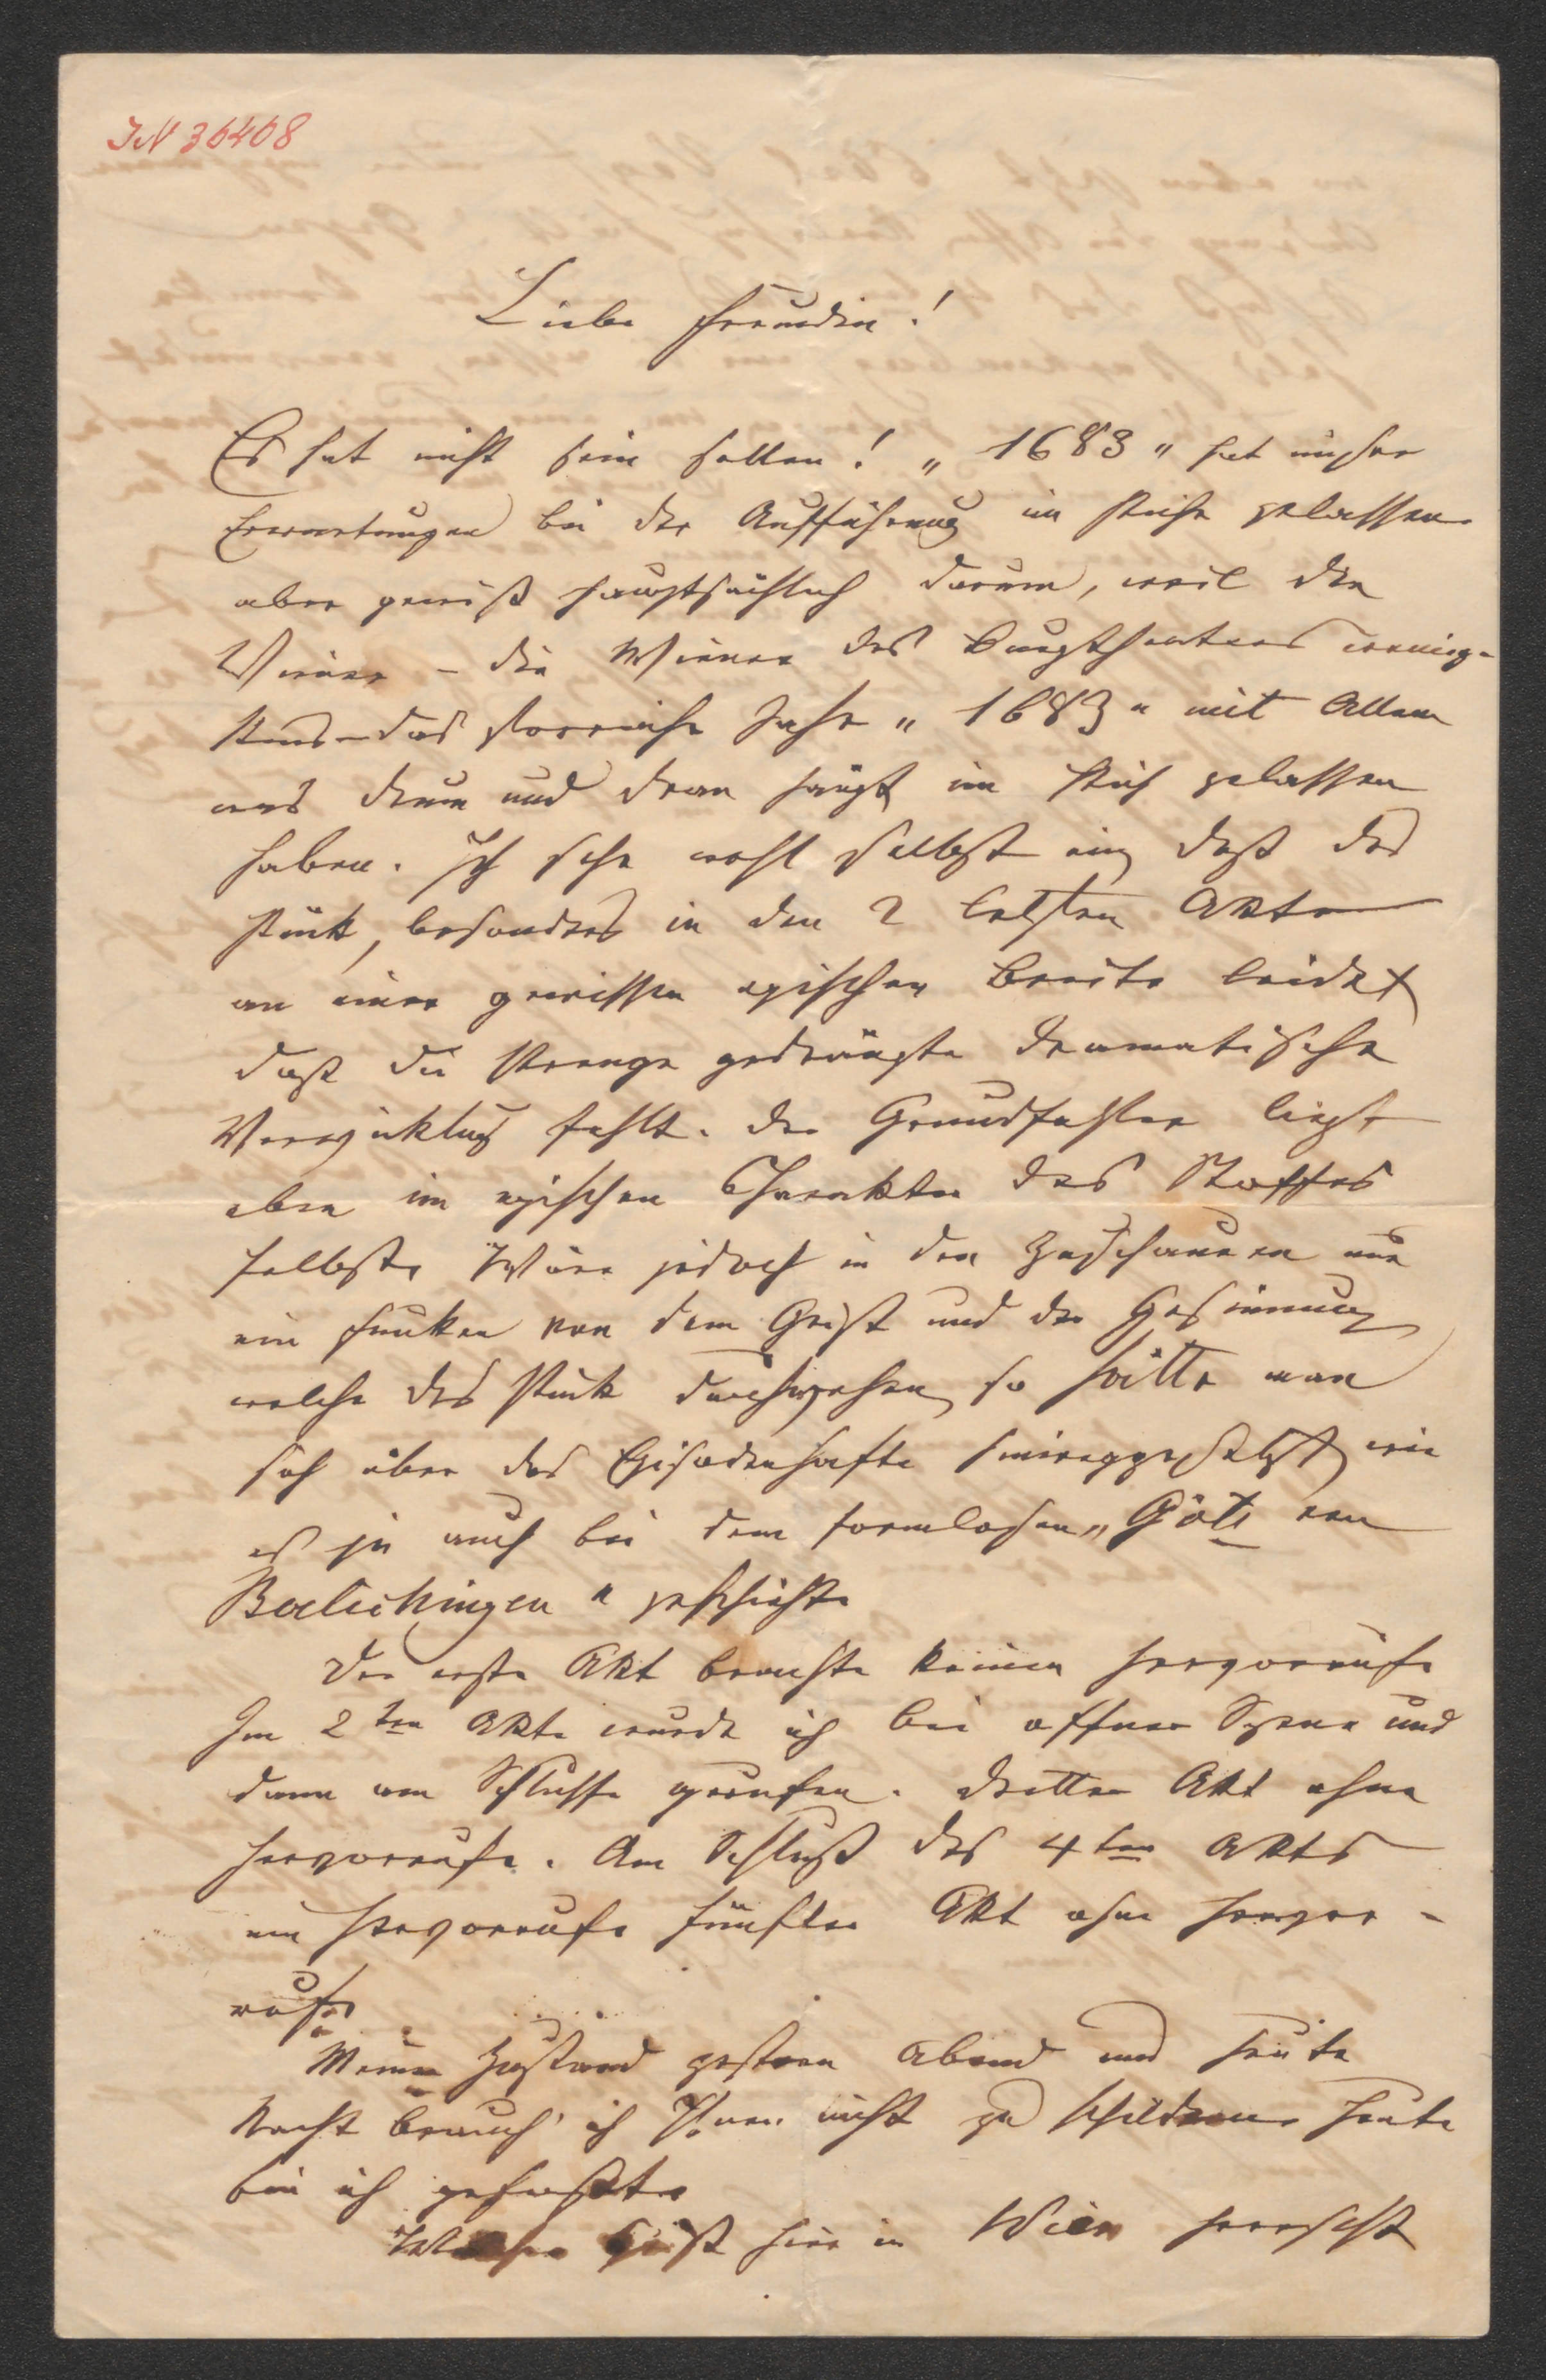 IN 36468
Liebe Freundin!
Es hat nicht sein sollen! „1683" hat unsre
Erwartungen bei der Aufführung im Stiche gelassen
aber gewiß hauptsächlich darum, weil die
Wiener – die Wiener des Burgtheaters wenig-
stens – das glorreiche Jahr „1683" mit Allem
was drum und dran hängt im Stich gelassen
haben. Ich sehe wohl selbst ein, daß das
Stück, besonders in den 2 letzten Akten
an einer gewissen epischen Breite leidet
daß die strenge gedrängte dramatische
Verwicklung fehlt. Der Grundfehler liegt
eben im epischen Charakter des Stoffes
selbst. Wäre jedoch in den Zuschauern nur
ein Funken von dem Geist und der Gesinnung
welche das Stück durchwehen, so hätte man
sich über das Episodenhafte hinweggesetzt, wie
es ja auch bei dem formlosen „Götz von
Berlichingen" geschieht.
Der erste Akt brachte keinen Hervorruf.
Im 2ten Akte wurde ich bei offner Szene und
dann am Schlusse gerufen. Dritter Akt ohne
Hervorruf. Am Schluß des 4ten Akts
ein Hervorruf. Fünfter Akt ohne Hervor-
ruf.
Meinen Zustand gestern Abend und heute
Nacht brauch' ich Ihnen nicht zu schildern. Heute
bin ich gefaßt.
Welcher Geist hier in Wien herrscht